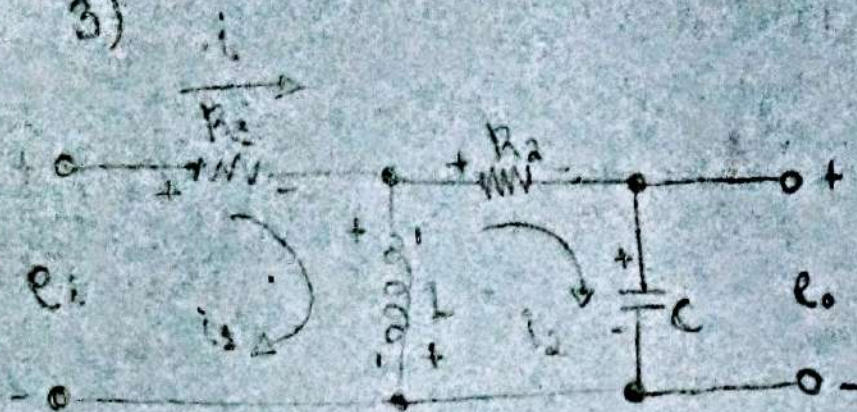 3)
i
R₁ R₂
+ - + - +
+ +
eᵢ i₁ L i₂ C eₒ
+ -
- -